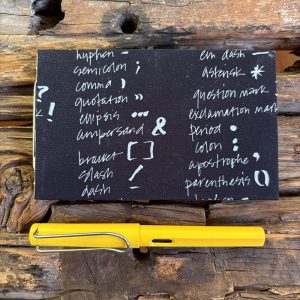 hyphen -
semicolon ;
comma )
quotation "
ellipsis ...
ampersand &
bracket []
slash /
dash —
? !
em dash —
asterisk *
question mark
exclamation mark
period .
colon :
apostrophe ,
parenthesis ()